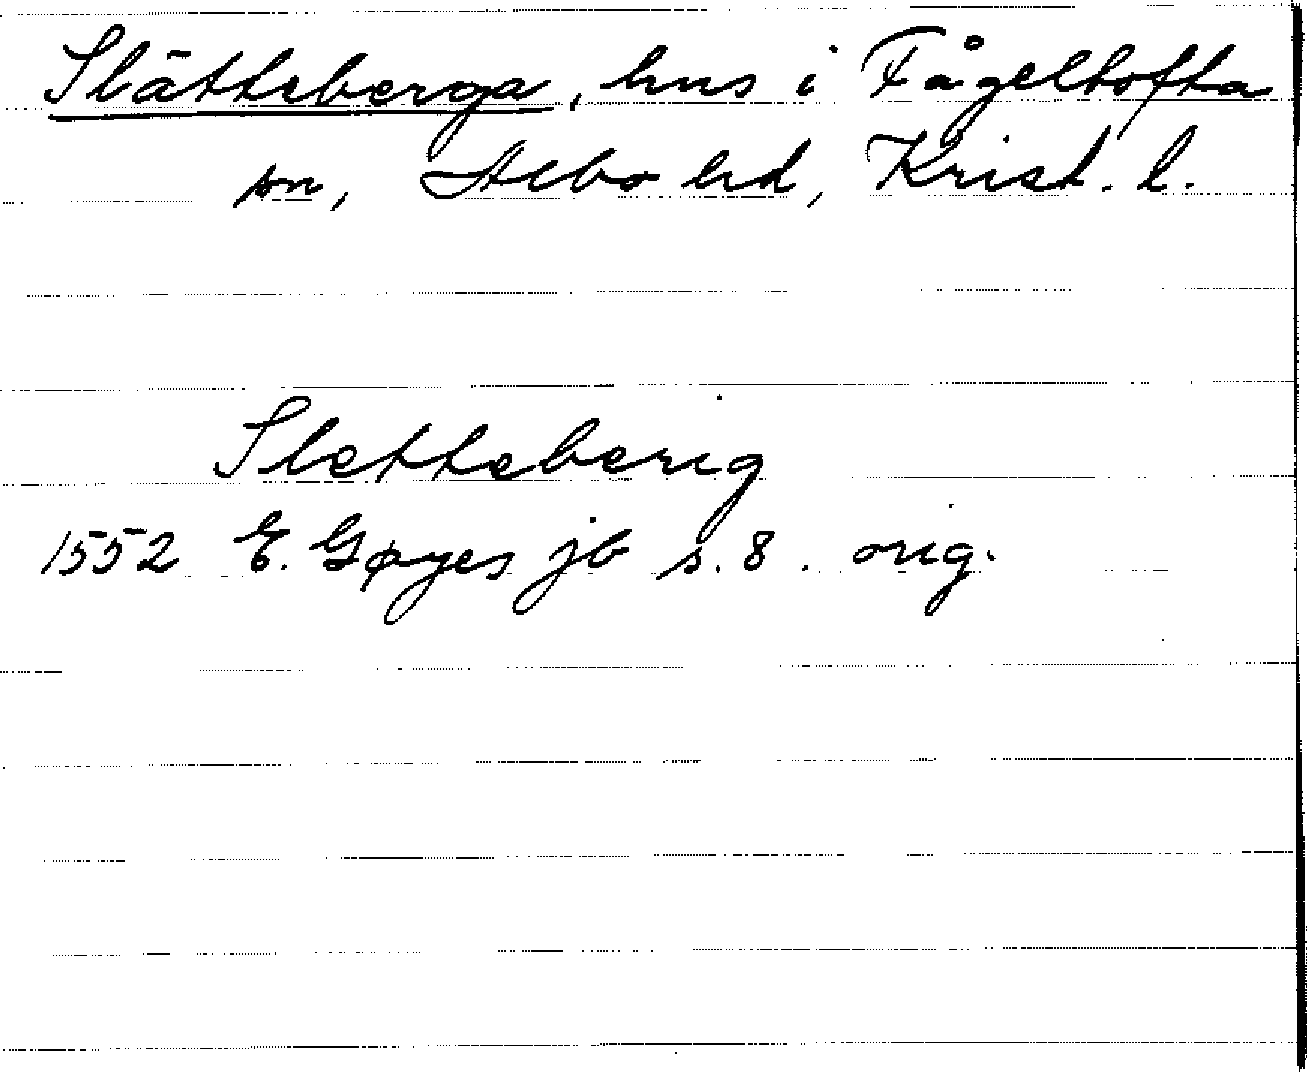 Slättseberga, hus i Fågeltofta
sn, Albo hd, Krist. l.
Sletteberig
1552 E. Gøyes jb s. 8. orig.